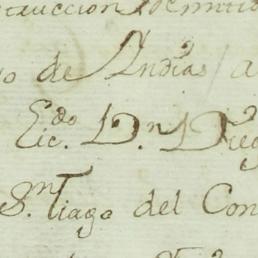 truccion
o de Yndias a
Lic.do D.n Dieg
S.n Tiago del Con